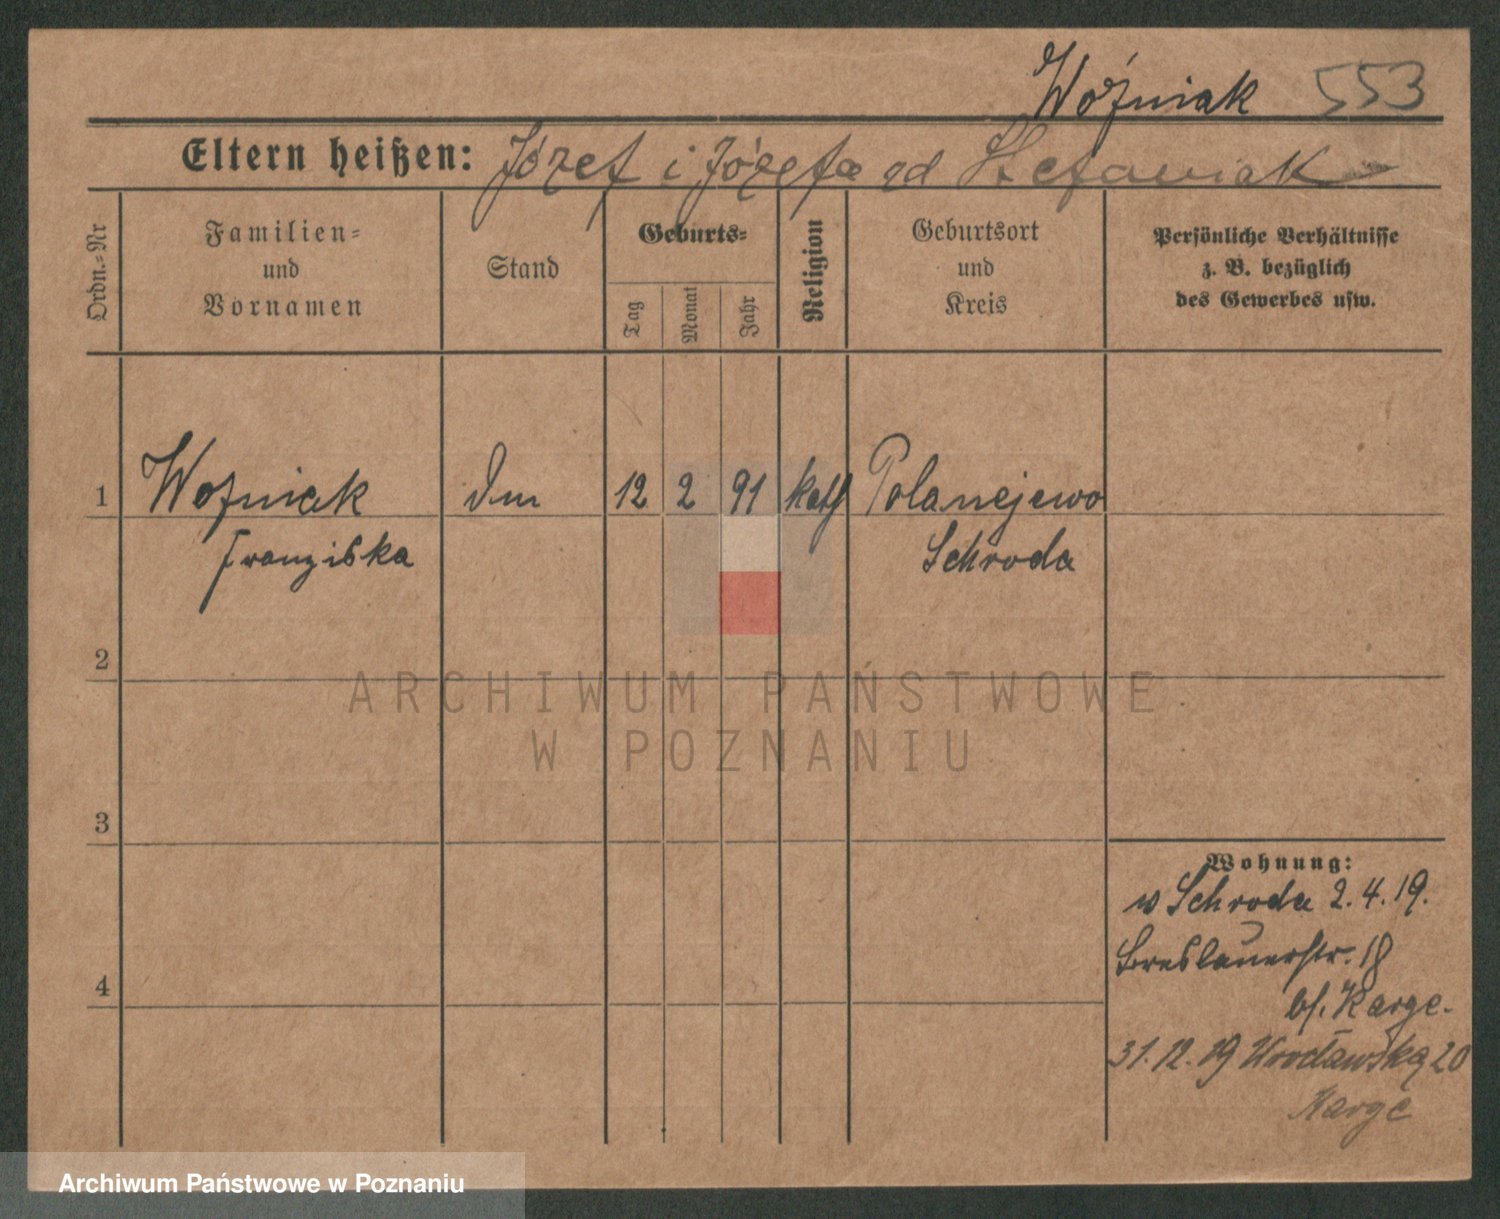 Woźniak 553
Eltern heißen: Józef i Józefa zd Stefaniak
Ordn.=Nr
Familien=
und
Vornamen
Stand
Geburts=
Tag
Monat
Jahr
Religion
Geburtsort
und
Kreis
Persönliche Verhältnisse
z. B. bezüglich
des Gewerbes usw.
1 Wozniak Dm 12 2 91 kath Polanejewo
Franziska Schroda
2
3
4
Wohnung:
w Schroda 2.4.19.
Breslauerstr. 18
bf. Karge.
31.12.19 Wrocławska 20
Karge
ARCHIWUM PAŃSTWOWE
W POZNANIU
Archiwum Państwowe w Poznaniu